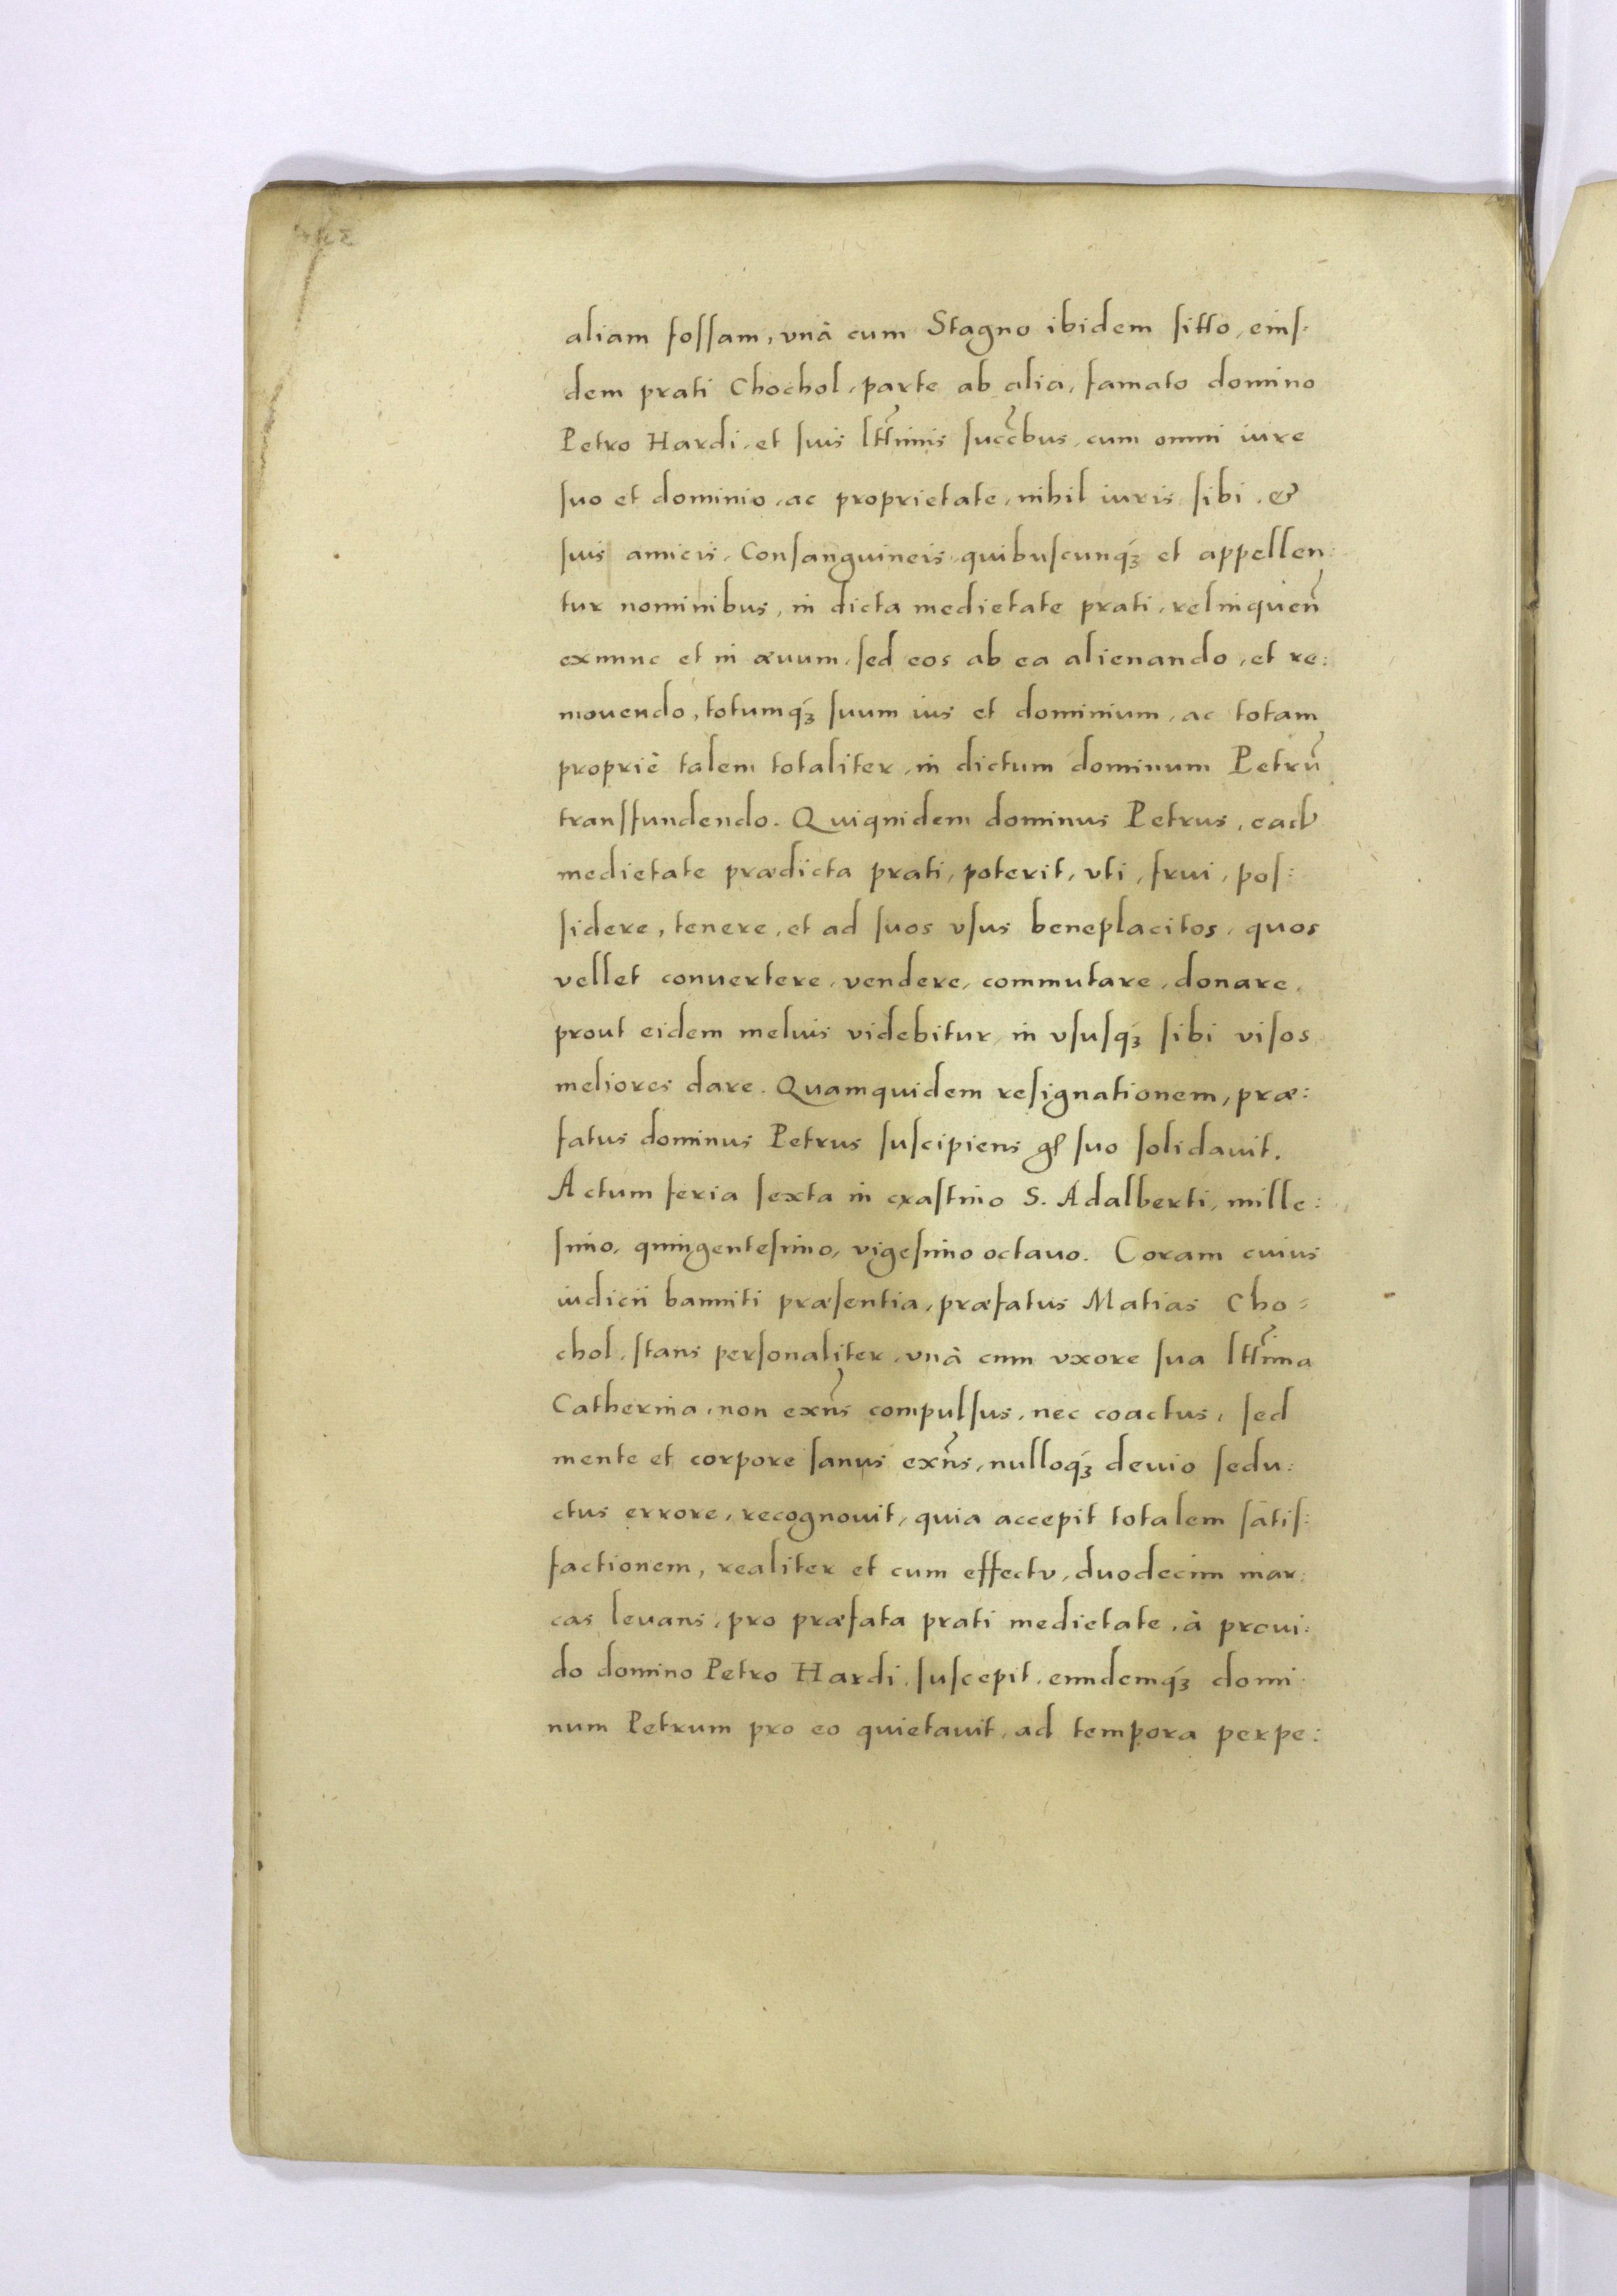 aliam foſſam, vnâ cum Stagno ibidem ſitto, eiuſ:
dem prati Chochol, parte ab alia, famato domino
Petro Hardi, et ſuis lttimis ſuccbus, cum omni iure
ſuo et dominio, ac proprietate, nihil iuris ſibi, &
ſuis amicis, Conſanguineis quibuſcunqꝫ et appellen:
tur nominibus, in dicta medietate prati, relinquen̄
exnunc et in æuum, ſed eos ab ea alienando, et re:
mouendo, totumqꝫ ſuum ius et dominium, ac totam
propriè talem totaliter, in dictum dominum Petrū
transfundendo. Quiquidem dominus Petrus, ead
medietate prædicta prati, poterit, vti, frui, poſ:
ſidere, tenere, et ad ſuos vſus beneplacitos, quos
vellet conuertere, vendere, commutare, donare,
prout eidem melius videbitur, in vſuſqꝫ ſibi viſos
meliores dare. Quamquidem reſignationem, præ:
fatus dominus Petrus ſuſcipiens ſuo ſolidauit.
Actum feria ſexta in craſtino S. Adalberti, mille:
ſimo, quingenteſimo, vigeſimo octauo. Coram cuius
iudicii banniti præſentia, præfatus Matias Cho=
chol, ſtans perſonaliter, vnâ cum vxore ſua lttima
Catherina, non exn̄s compulſus, nec coactus, ſed
mente et corpore ſanus exn̄s, nulloqꝫ deuio ſedu:
ctus errore, recognouit, quia accepit totalem ſatiſ:
factionem, realiter et cum effectu, duodecim mar:
cas leuans, pro præfata prati medietate, à proui:
do domino Petro Hardi, ſuſcepit, eundemqꝫ domi:
num Petrum pro eo quietauit, ad tempora perpe: